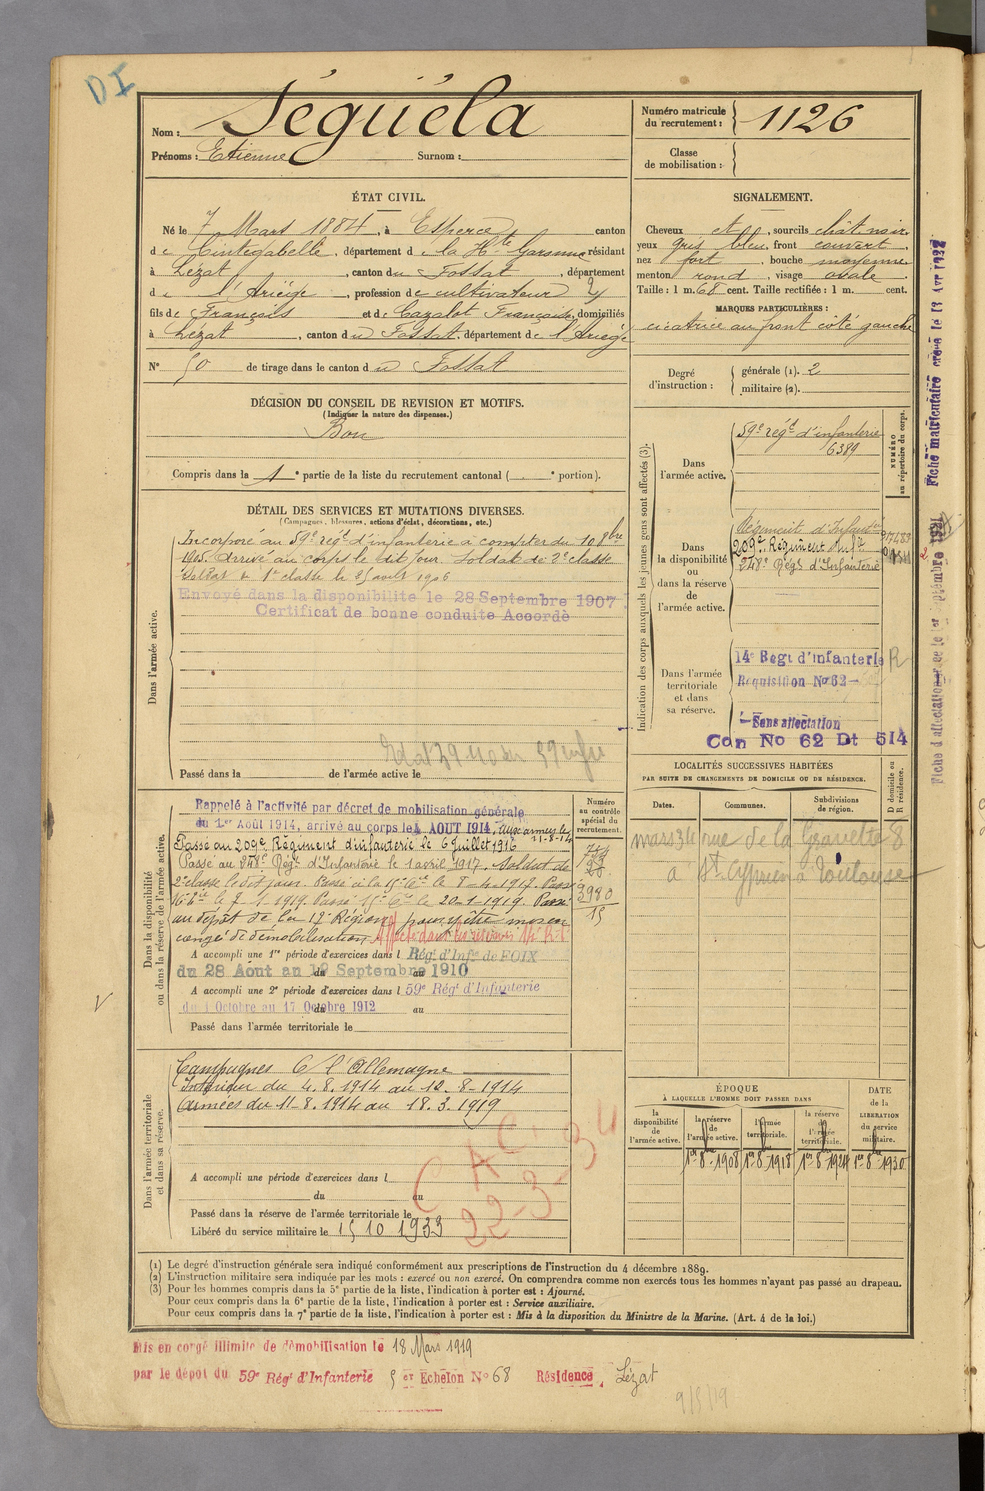 DI
Nom : Séguéla
Prénoms : Etienne Surnom :
Numéro matricule
du recrutement : 1126
Classe
de mobilisation :
ÉTAT CIVIL.
Né le 7 Mars 1884, à Esperce canton
de Cintegabelle, département de la Hte Garonne résidant
à Lézat, canton du Fossat, département
de l'Ariège, profession de cultivateur
fils de François et de Cazalot Françoise, domiciliés
à Lézat, canton du Fossat, département de l'Ariège
N° 50 de tirage dans le canton du Fossat
SIGNALEMENT.
Cheveux et, sourcils chât noir
yeux gris bleu, front couvert,
nez fort, bouche moyenne
menton rond, visage ovale
Taille : 1 m. 68 cent. Taille rectifiée : 1 m. cent.
MARQUES PARTICULIÈRES :
cicatrice au front coté gauche
Degré
d'instruction :
générale (1). 2
militaire (2).
DÉCISION DU CONSEIL DE REVISION ET MOTIFS.
(Indiquer la nature des dispenses.)
Bon
Compris dans la 1e partie de la liste du recrutement cantonal ( e portion).
DÉTAIL DES SERVICES ET MUTATIONS DIVERSES.
(Campagnes, blessures, actions d'éclat, décorations, etc.)
Dans l'armée active.
Incorporé au 59e régt d'infanterie à compter du 10 8bre
1905. Arrivé au corps le dit jour. Soldat de 2e classe
Soldat de 1re classe le août 1906
Envoyé dans la disponibilité le 28 Septembre 1907
Certificat de bonne conduite Accordé
Passé dans la de l'armée active le
Indication des corps auxquels les jeunes gens sont affectés (3).
NUMÉRO
au répertoire du corps.
Dans
l'armée active.
59e régt d'infanterie
6389
Dans
la disponibilité
ou
dans la réserve
de
l'armée active.
Régiment d'Infanterie
209e Régiment Inf
248e Régt d'Infanterie
Dans l'armée
territoriale
et dans
sa réserve.
14e Regt d'Infanterie R
Requisition No 62
Sans affectation
Can No 62 Dt 514
Fiche matriculaire créée le 13 Avr 1922
LOCALITÉS SUCCESSIVES HABITÉES
PAR SUITE DE CHANGEMENTS DE DOMICILE OU DE RÉSIDENCE.
Dates. Communes. Subdivisions
de région.
D domicile ou
R résidence.
mars 34 rue de la Gravette 8
à St Cyprien à Toulouse
Dans la disponibilité
ou dans la réserve de l'armée active.
Numéro
au contrôle
spécial du
recrutement.
Rappelé à l'activité par décret de mobilisation générale
du 1er Août 1914, arrivé au corps le 4 AOUT 1914. Aux armées le
11-8-14
Passé au 209e Régiment d'infanterie le 6 juillet 1916
Passé au 248e Régt d'Infanterie le 1 avril 1917. Soldat de
2e classe le dit jour. Passé à la 15e Cie le 8-4-1917. Passé
16e Cie le 7-1-1919. Passé 15e Cie le 20-1-1919. Passé
au dépôt de la 17e Région pour y être mis en
congé de démobilisation. Affecté dans les réserves 14e R.I.
3980
15
A accompli une 1re période d'exercices dans l Régt d'Infie de FOIX
du 28 Aout au 19 Septembre 1910
A accompli une 2e période d'exercices dans l 59e Régt d'Infanterie
du 1 Octobre au 17 Octobre 1912 au
Passé dans l'armée territoriale le
Dans l'armée territoriale
et dans sa réserve.
Campagnes C/ l'Allemagne
Intérieur du 4.8.1914 au 12-8-1914
Armées du 11-8.1914 au 18.3.1919
C A C
22-3-34
A accompli une période d'exercices dans l
du au
Passé dans la réserve de l'armée territoriale le
Libéré du service militaire le 15 10 1933
ÉPOQUE
À LAQUELLE L'HOMME DOIT PASSER DANS
la
disponibilité
de
l'armée active.
la réserve
de
l'armée active.
l'armée
territoriale.
la réserve
de
l'armée
territoriale.
DATE
de la
LIBÉRATION
du service
militaire.
1er 8bre 1908 1er 8bre 1918 1er 8bre 1924 1er 8bre 1930
(1) Le degré d'instruction générale sera indiqué conformément aux prescriptions de l'instruction du 4 décembre 1889.
(2) L'instruction militaire sera indiquée par les mots : exercé ou non exercé. On comprendra comme non exercés tous les hommes n'ayant pas passé au drapeau.
(3) Pour les hommes compris dans la 5e partie de la liste, l'indication à porter est : Ajourné.
Pour ceux compris dans la 6e partie de la liste, l'indication à porter est : Service auxiliaire.
Pour ceux compris dans la 7e partie de la liste, l'indication à porter est : Mis à la disposition du Ministre de la Marine. (Art. 4 de la loi.)
Mis en congé illimité de démobilisation le 18 Mars 1919
par le dépôt du 59e Régt d'Infanterie 5 er Echelon No 68 Résidence, Lézat
9/5/19